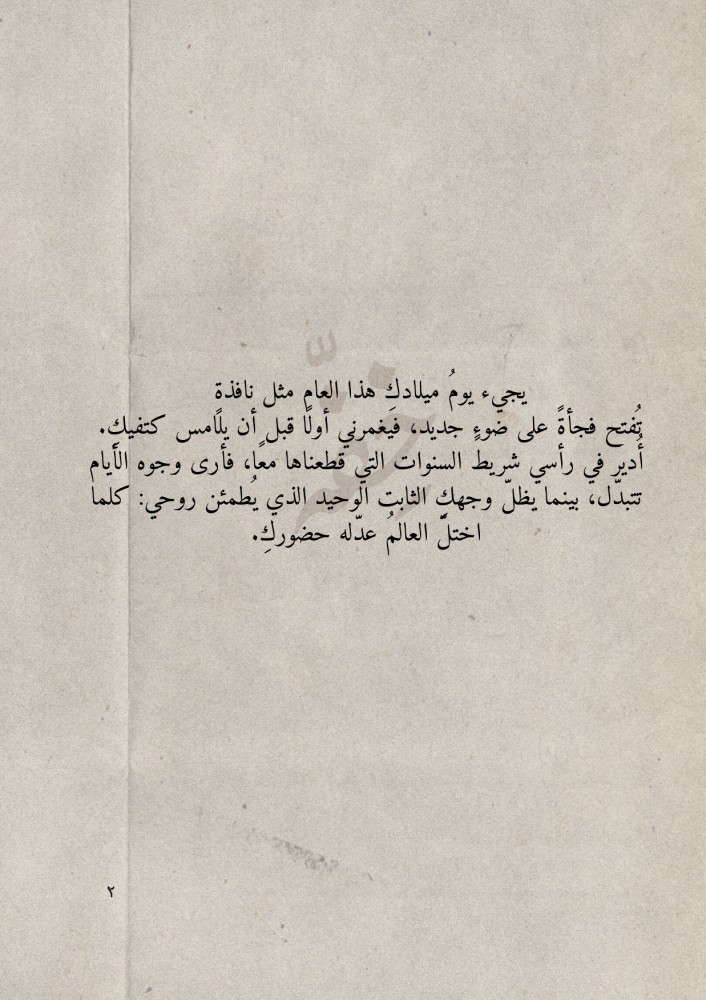 يجيء يومُ ميلادكِ هذا العام مثل نافذة
تُفتح فجأةً على ضوءٍ جديد، فيغمرني أولًا قبل أن يلامس كتفيكِ.
أُدير في رأسي شريط السنوات التي قطعناها معًا، فأرى وجوه الأيام
تتبدّل، بينما يظلّ وجهكِ الثابت الوحيد الذي يُطمئن روحي: كلما
اختلّ العالمُ عدّله حضوركِ.
٢